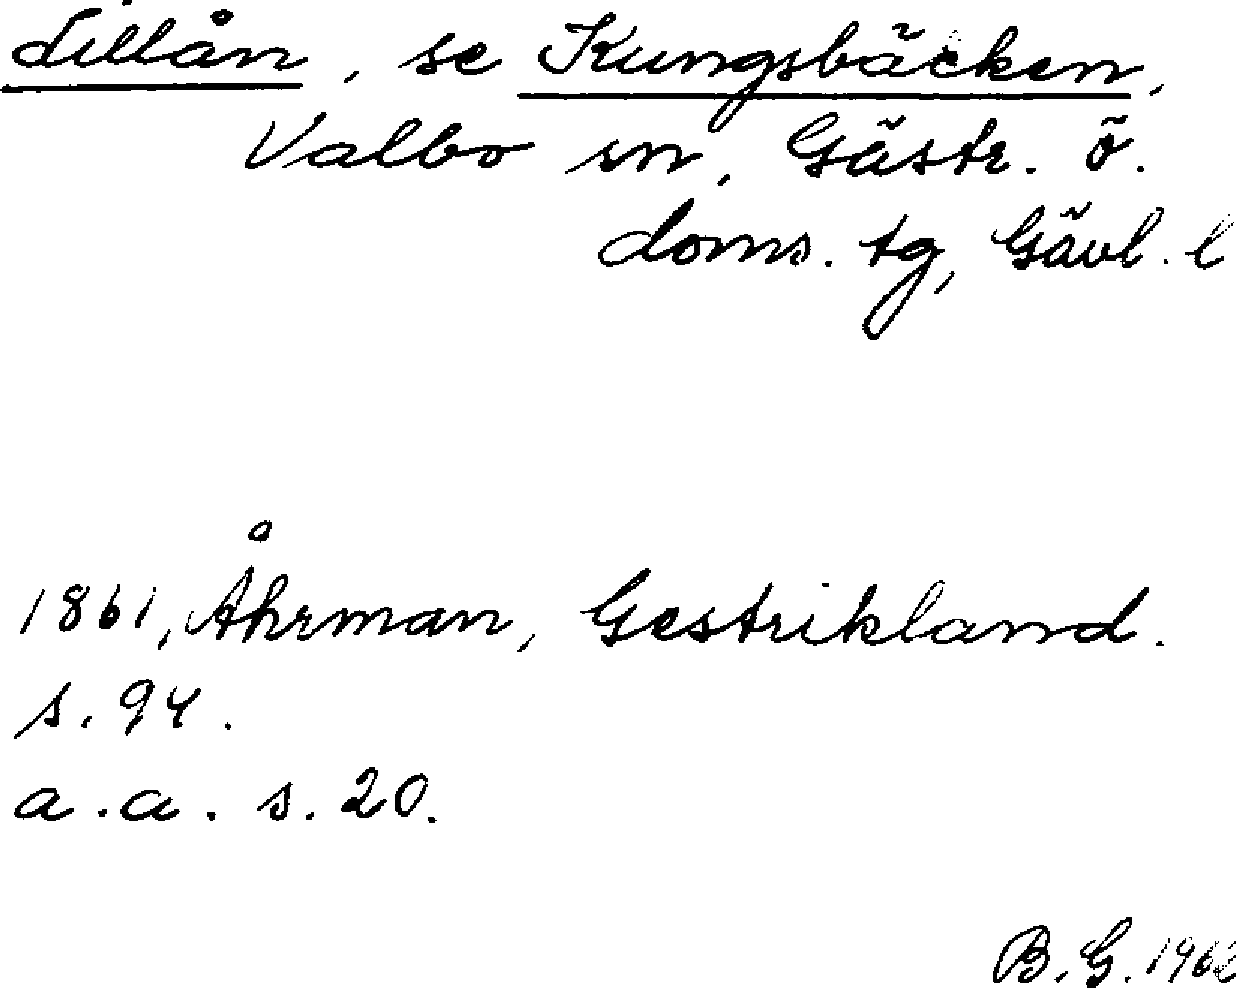 Lillån, se Kungsbäcken,
Valbo sn, Gästr. ö.
doms. tg, Gävl. l
1861, Åhrman, Gestrikland.
s. 94.
a.a. s. 20.
B.G. 1962